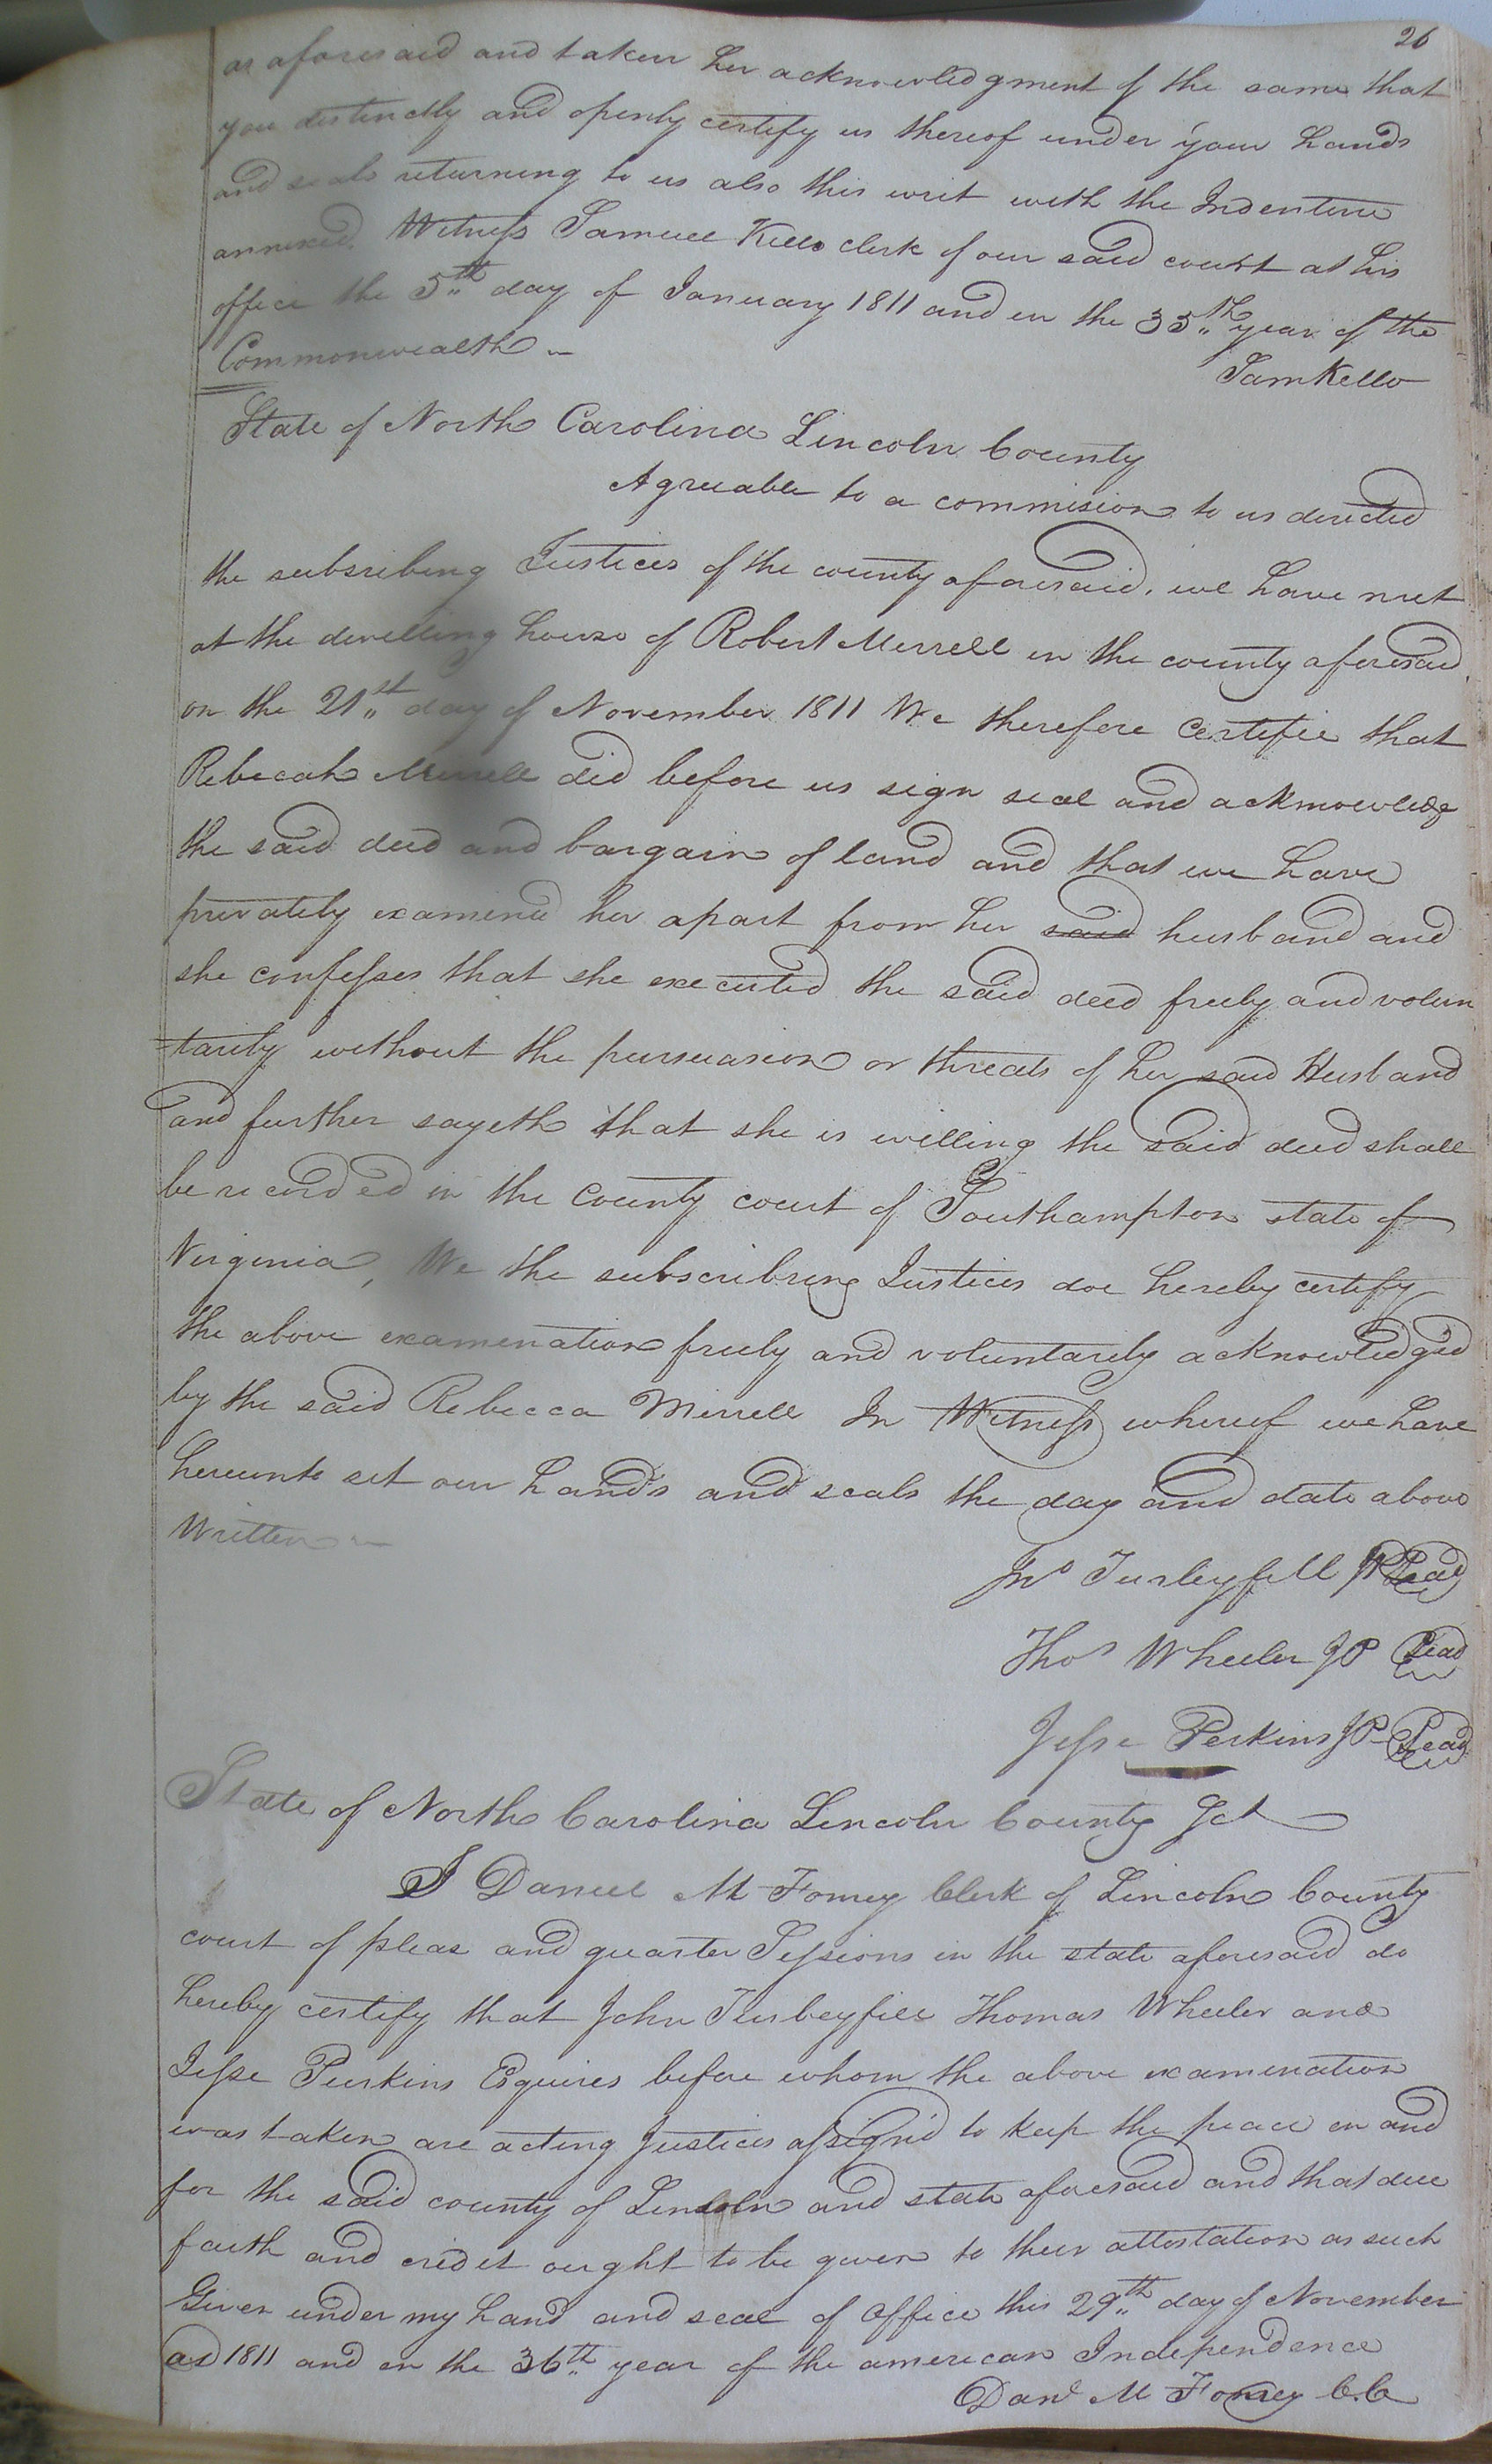 26
as aforesaid and taken her acknowledgment of the same that
you distinctly and openly certify us thereof under your hands
and seals returning to us also this writ with the Indenture
annexed. Witness Samuel Kello clerk of our said court at his
office the 5th day of January 1811 and in the 35th year of the
Commonwealth
Sam Kello
State of North Carolina Lincoln County
Agreeable to a commision to us directed
the subscribing Justices of the county aforesaid. we have met
at the dwelling house of Robert Merrell in the county aforesaid
on the 21st day of November 1811 We therefore certifie that
Rebecah Merrell did before us sign seal and acknowledg
the said deed and bargain of land and that we have
privately examened her apart from her said husband and
she confesses that she executed the said deed freely and volun
=tarily without the pursuasion or threats of her said Husband
and further sayeth that she is willing the said deed shall
be recorded in the county court of Southampton state of
Virginia, We the subscribing Justices doe hereby certify
the above examenation freely and voluntarily acknowledged
by the said Rebecca Merrell In Witness whereof we have
hereunto set our hands and seals the day and date above
Written
Jno Turbeyfill JP Seal
Thos Wheeler JP Seal
Jesse Perkins JP Seal
State of North Carolina Lincoln County Sct
I Daniel M Forney Clerk of Lincoln County
court of pleas and quarter Sessions in the state aforesaid do
hereby certify that John Turbeyfill Thomas Wheeler and
Jesse Perkins Esquires before whom the above examenation
was taken are acting Justices assign'd to keep the peace in and
for the said county of Lincoln and state aforesaid and that due
faith and credit ought to be given to their attestation as such
Given under my hand and seal of office this 29th day of November
ad 1811 and in the 36th year of the american Independence
Danl M Forney C.C